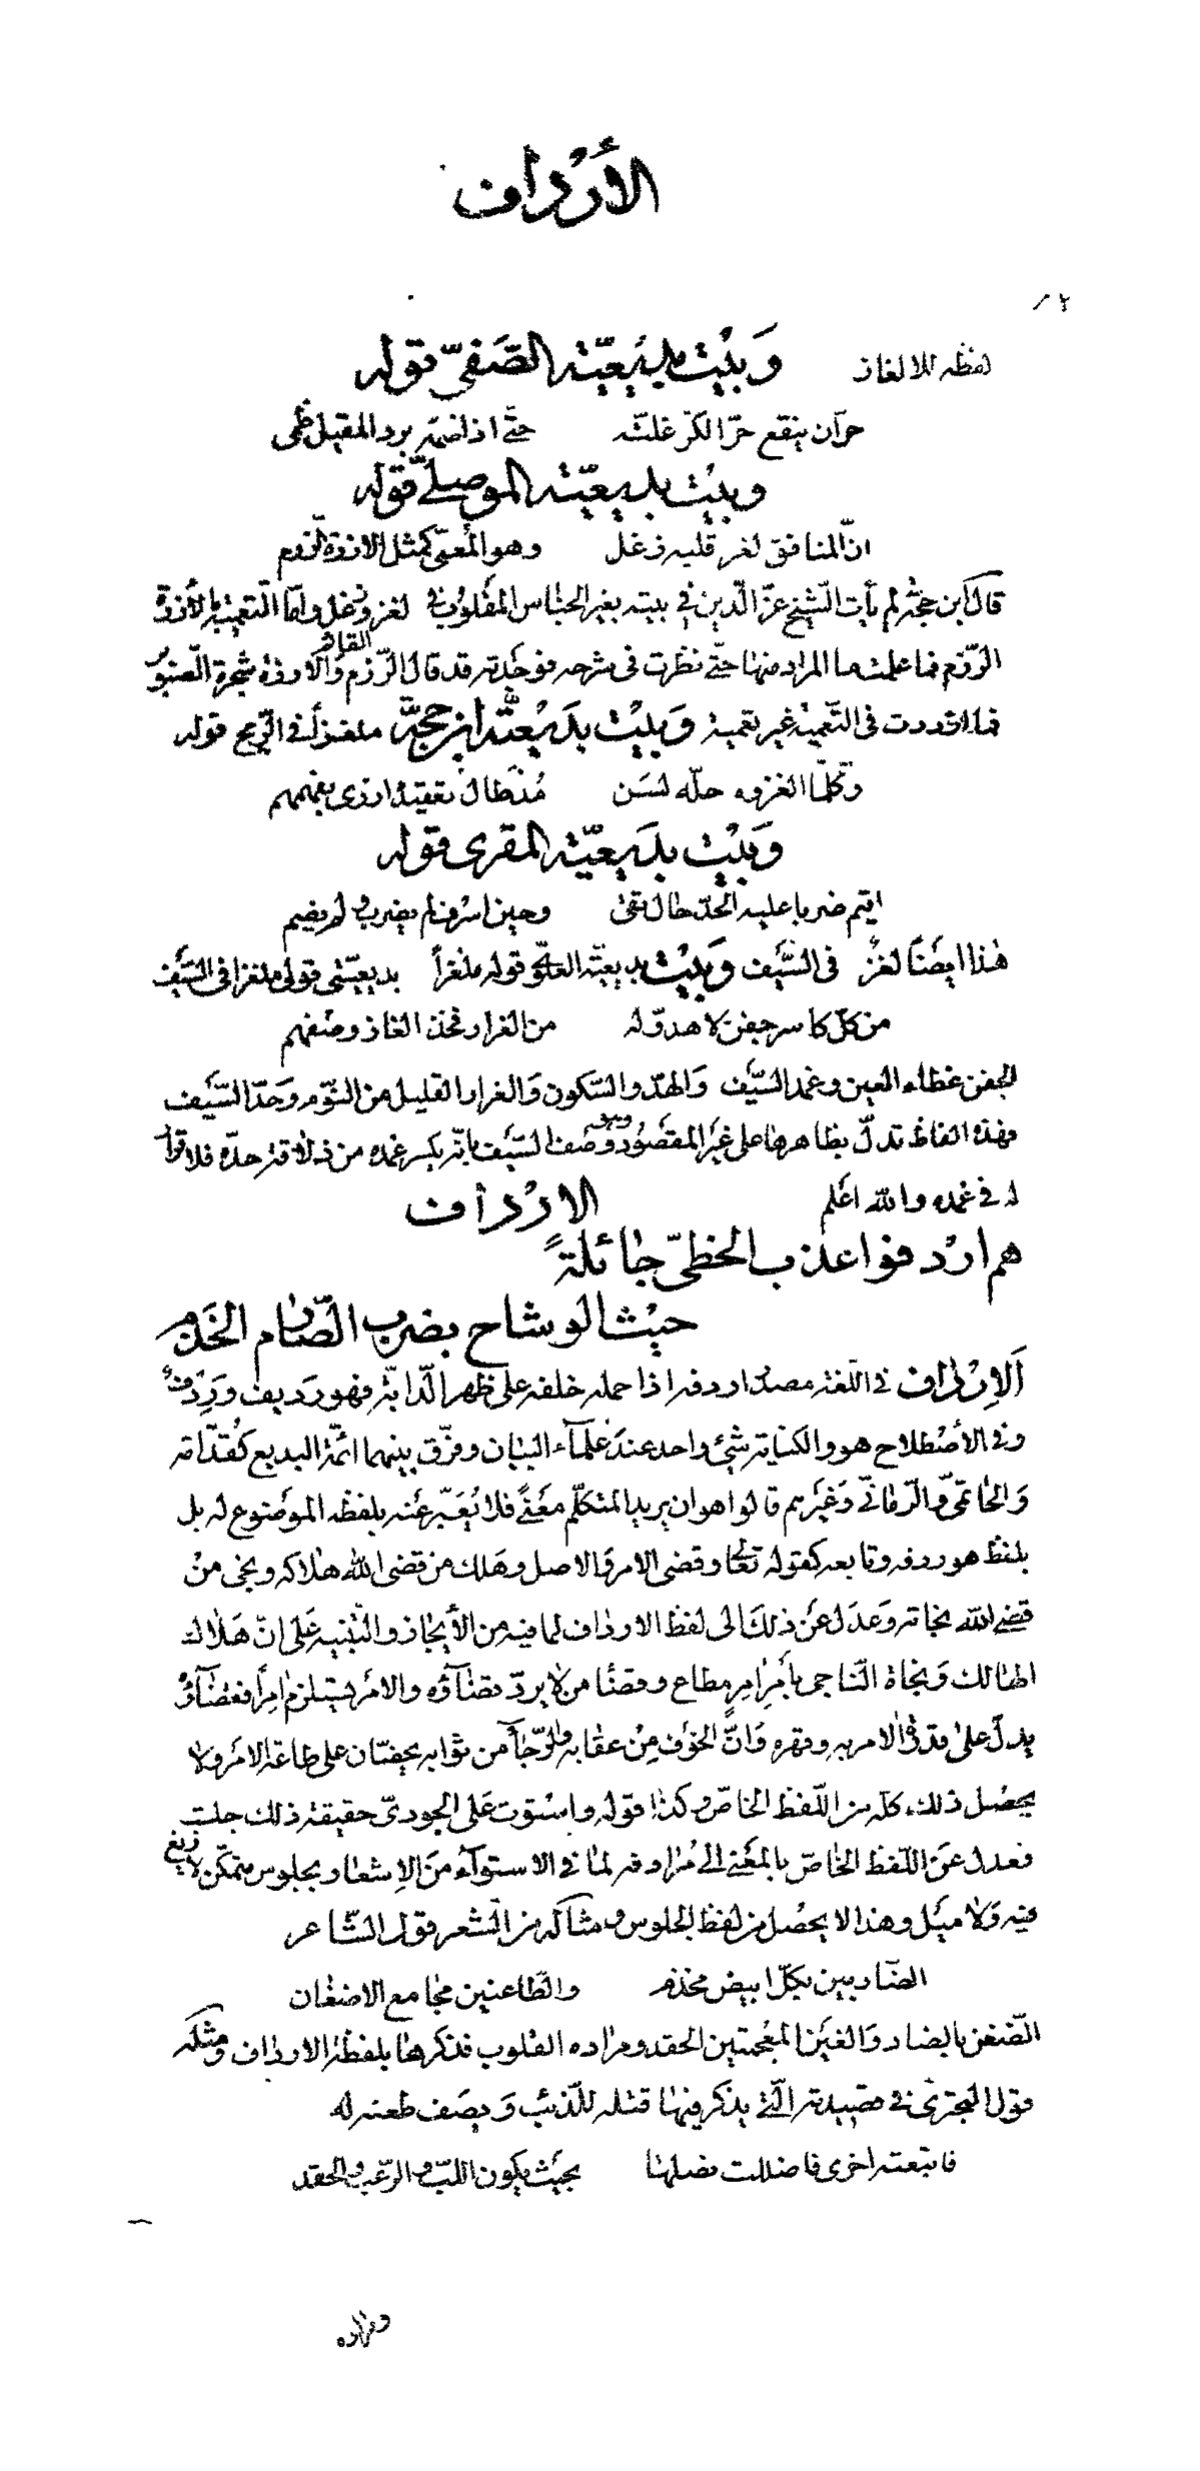 الأرداف
لفظه للالغاز وَبَيْت بديعيّة الصّفيّ قوله
حرّان ينقع حرّ الكرّ غلّته حتّى اذا ضمّه برد المقيل ظمى
وبيت بديعيّة الموصلىّ قوله
انّ المنافق لغز قلبه زغل وهو المعمّى كمثل الارزة الرزم
قال ابن حجّة لم يأت الشّيخ عزّ الدّين فى بيته بغير الجناس المقلوب فى لغز وزغل وامّا التعمية بالأرزة
الرّزم فما علمت ما المراد منها حتّى نظرت فى شرحه فوجدته قد قال الرّزم القائم والارزة شجرة الصّنوبر
فما ازددت فى التّعمية غير تعمية وَبيْت بدَيْعيّة ابن حجّة ملغزاً فى الرّمح قوله
وكلّما الغزوه حلّه لسَن مُذ طال تعقيده ازرى بفهمهم
وَبَيْت بدَيعيّة المقرى قوله
اقيم ضربا عليه الحدّ حال تقىً وحين اسرف لم يضرب ولم يضم
هٰذا ايضًا لغز فى السّيف وَبَيْت بديعيّة العلوىّ قوله ملغزاً بديعيّتى قولى ملغزا فى السّيف
من كلّ كاسر جفن لا هدوّ له من الغرار فخذ الغاز وصفهم
الجفن غطاء العين وغمد السّيف وَالهدّو السّكون وَالغرار القليل من النّوم وَحَدّ السّيف
فهذه الفاظ تدلّ بظاهرها على غَير المقصُود وهو وصَف السّيف بانّه يكسر غمده من ذلاقة حدّه فلا قرار
له فى غمده والله اعلم الارْدٰاف
هم اردفوا عذب الخطىّ جائلةً
حيْث الوشاح بضرب الصّارم الخَذم
اَلاِرْدٰاف فى اللّغة مصدر اردفه اذا حمله خلفه على ظهر الدّابّة فهو رَديف ورِدْف
وفى الأصْطلاح هو والكناية شئ واحد عندَ علمآء البيان وفرّق بينهما ائمّة البديع كقُدامة
وَالحاتمىّ وَالرّمانىّ وَغيَرهم قالوا هو ان يريد المتكلّم مَعْنىً فلا يُعَبّر عنه بلفظه الموضوع له بل
بلفظ هو ردفه وتابعه كقوله تعالى وقضى الامر وَالاصل وهَلك من قضى الله هلاكه ونجى منْ
قضى الله نجاته وَعدَل عَن ذلكَ الى لفظ الارداف لما فيه من الأيجاز والتّنبيه عَلى انّ هَلاك
الهالك وَنجاة النّاجى بأمرِ امِرٍ مطاع وقضٰا من لا يردّ قضآؤه والامر يَستلزم امِراً فقضآؤه
يدلّ على قدرة الامر به وقهره وَانَّ الخوَف مِنْ عقابه والرّجاَء من ثوابه يحضّان على طاعة الامر وَلا
يحصُل ذلك كلّه من اللّفظ الخاصّ وكذا قوله واسْتوت عَلى الجودىّ حقيقة ذلك جلست
فعدل عَن اللّفظ الخاصّ بالمعَنى الى مُرادفه لما فى الاستوآء منَ الاِشعار بجلوس متمكّن لا زيغ
فيه وَلا ميَل وهذا لا يحصُل من لفظ الجلوس ومثاله من الشّعر قول الشّاعر
الضّاربين بكلّ ابيض مخذم والطّاعنين مجٰامع الاضغٰان
الضّغن بالضاد وَالغيَن المعجمتين الحقد ومراده القلوب فذكرهٰا بلفظ الارداف ومثله
قول البحترىّ فى قصيدته الّتى يذكر فيهٰا قتله للذّئب وَيصَف طعنه له
فاتبعته اخرى فاضللت نصلها بحيَث يكون اللبّ والرّعب والحقد
ومراده